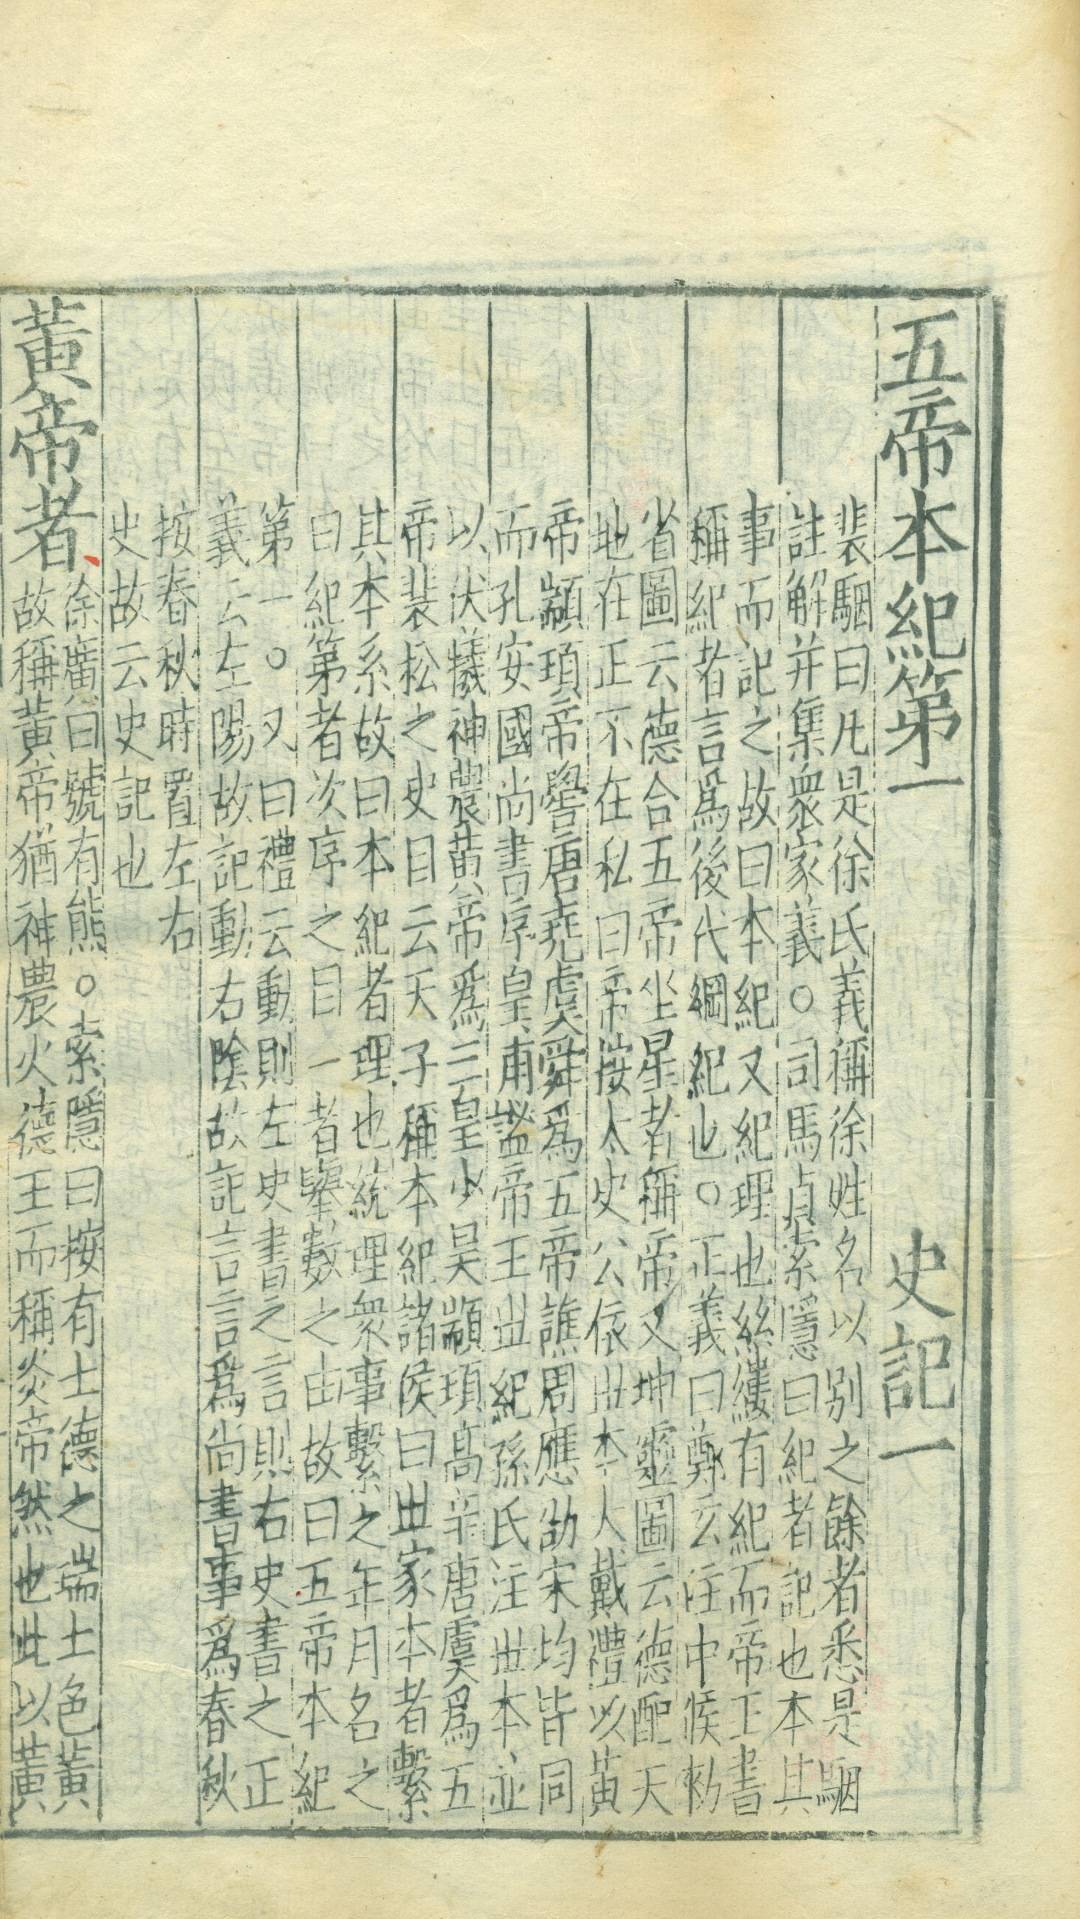 五帝本紀第一 史記一
裴駰曰凡是徐氏義稱徐姓名以别之餘者悉是駰
註解并集衆家義○司馬貞索隱曰紀者記也本其
事而記之故曰本紀又紀理也絲縷有紀而帝王書
稱紀者言爲後代綱紀也○正義曰鄭玄注中候勑
省圖云德合五帝坐星者稱帝又坤靈圖云德配天
地在正不在私曰帝按太史公依世本大戴禮以黃
帝顓頊帝嚳唐堯虞舜爲五帝譙周應劭宋均皆同
而孔安國尚書序皇甫謐帝王世紀孫氏注世本並
以伏犧神農黃帝爲三皇少昊顓頊高辛唐虞爲五
帝裴松之史目云天子稱本紀諸侯曰世家本者繫
其本系故曰本紀者理也統理衆事繫之年月名之
曰紀第者次序之目一者舉數之由故曰五帝本紀
第一○又曰禮云動則左史書之言則右史書之正
義云左陽故記動右陰故記言言爲尚書事爲春秋
按春秋時置左右
史故云史記也
黃帝者
徐廣曰號有熊○索隱曰按有土德之瑞土色黃
故稱黃帝猶神農火德王而稱炎帝然也此以黃